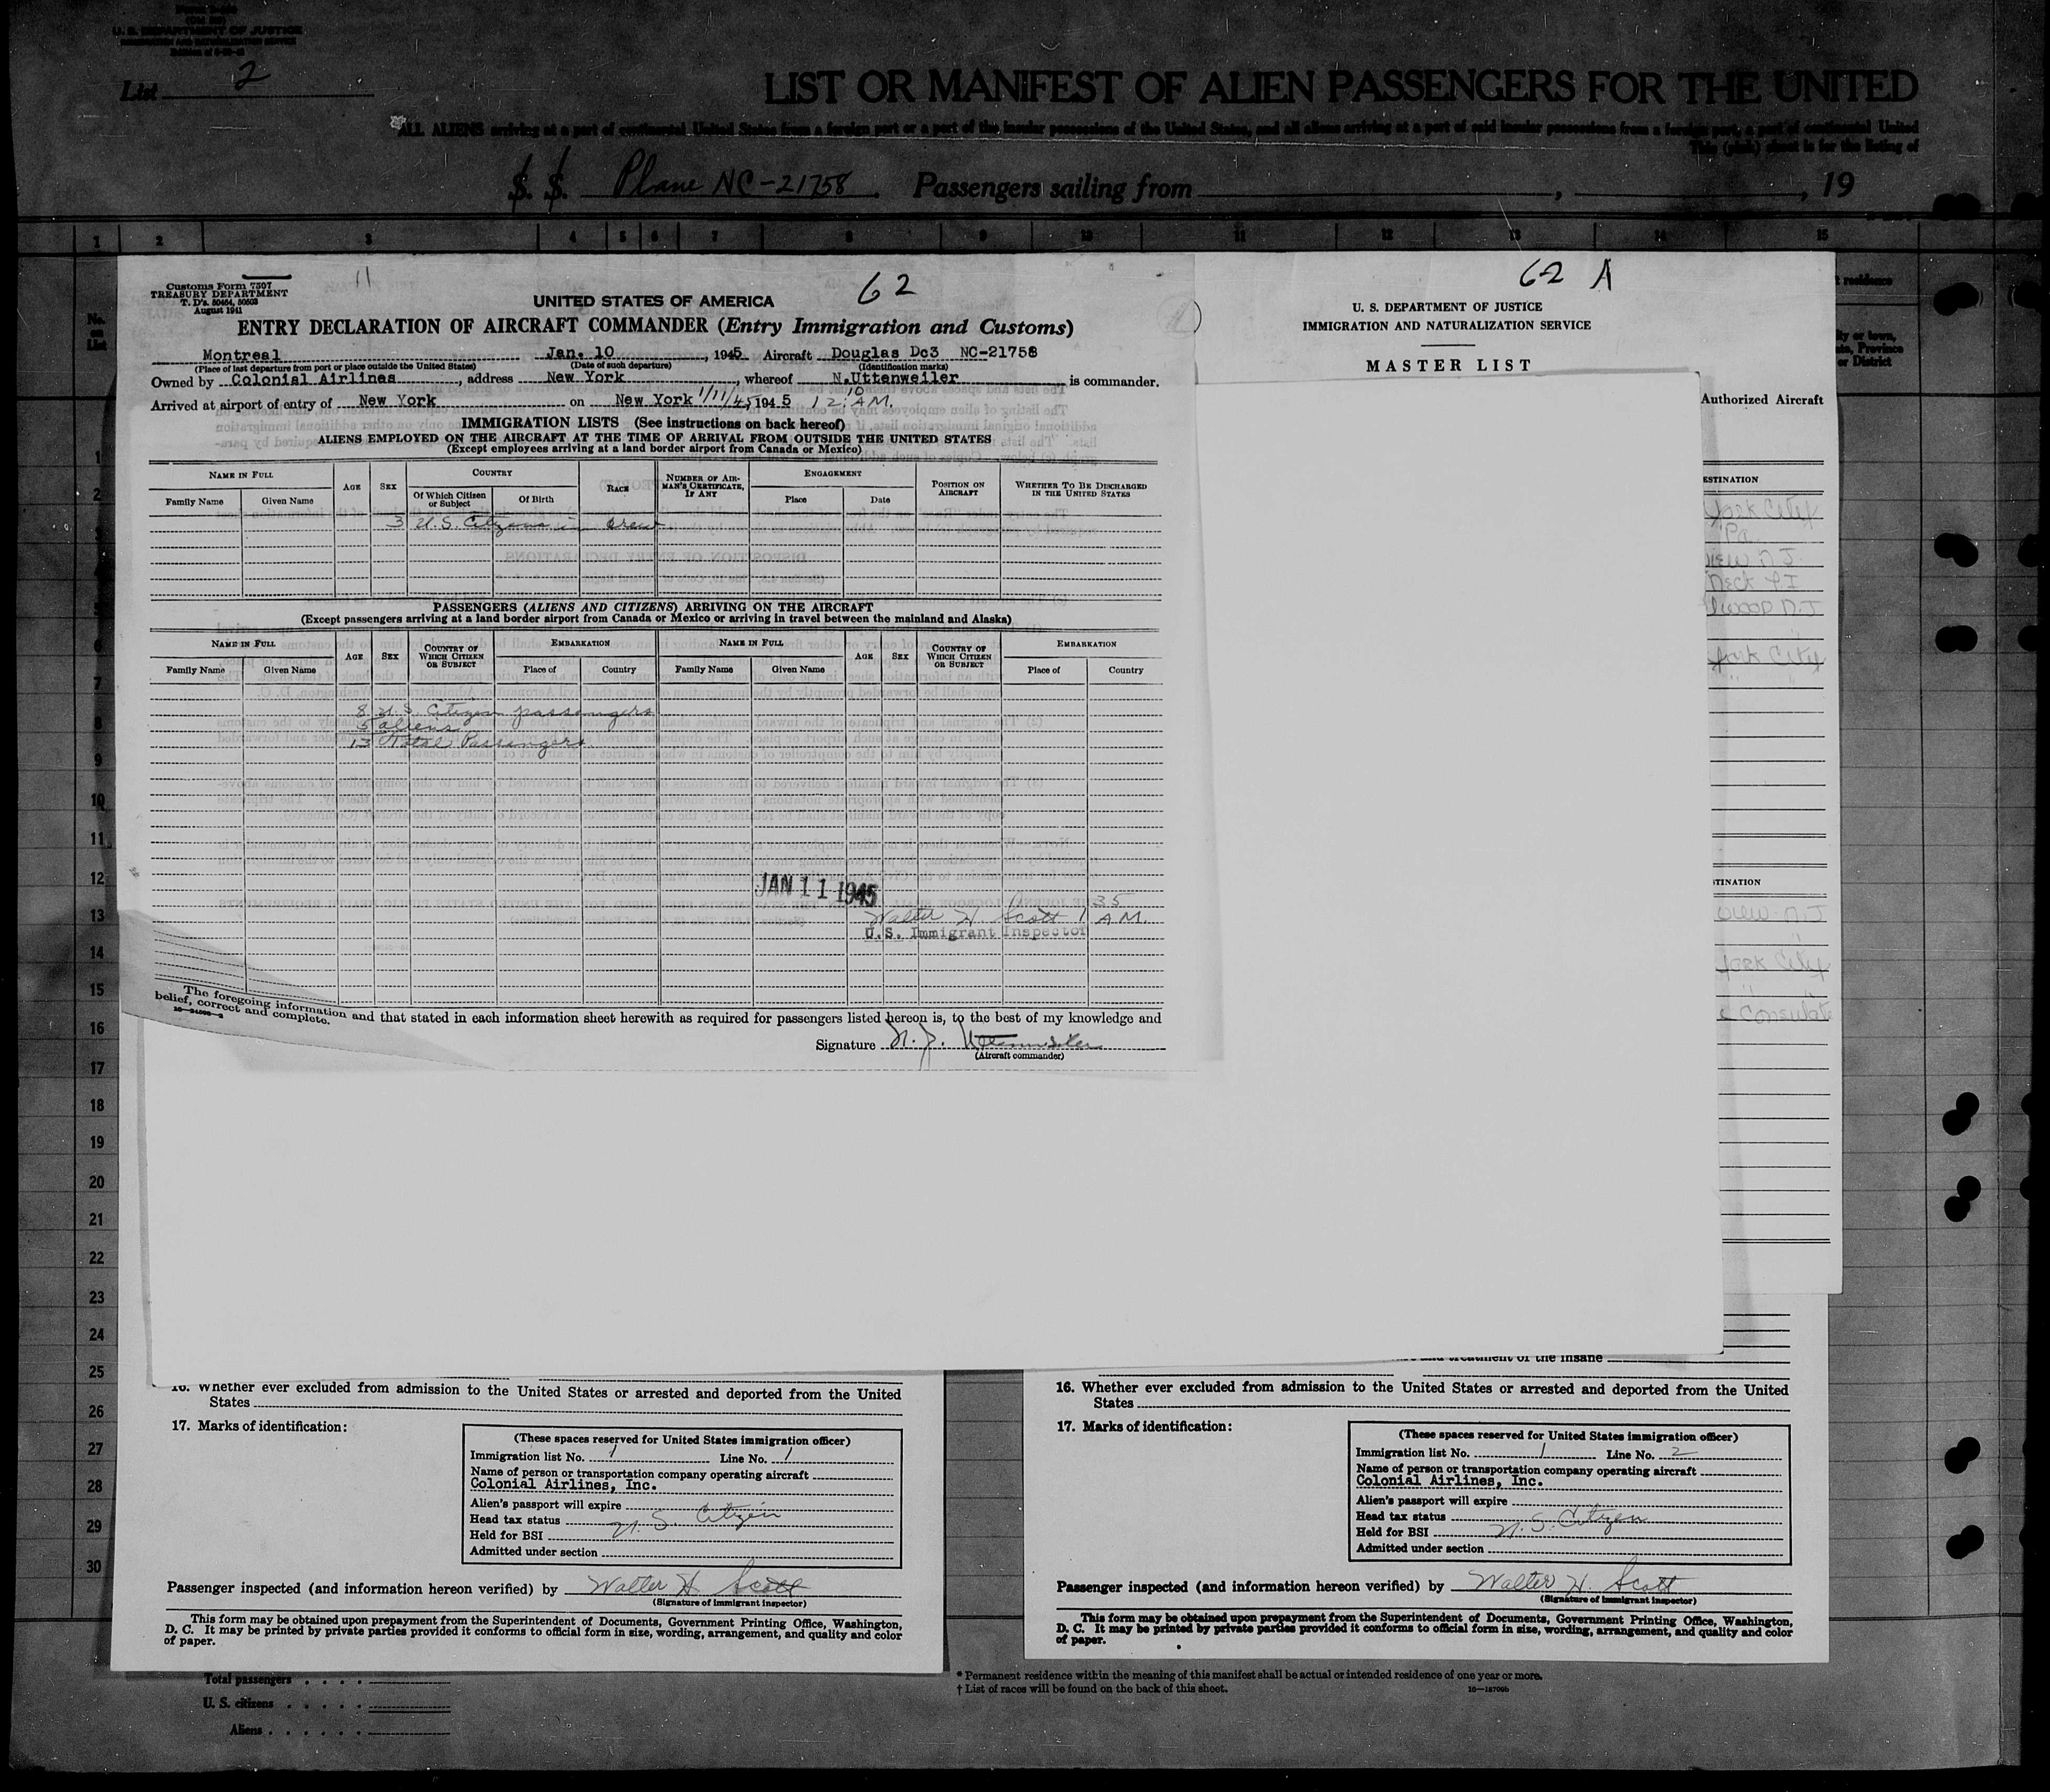 U. S. DEPARTMENT OF JUSTICE
List 2
LIST OR MANIFEST OF ALIEN PASSENGERS FOR THE UNITED
ALL ALIENS arriving at a port of continental United States from a foreign port or a port of the insular possessions of the United States, and all aliens arriving at a port of said insular possessions from a foreign port, a port of continental United
This (pink) sheet is for the listing of
S. S. Plane NC-21758 Passengers sailing from , , 19
1 2 3 4 5 6 7 8 9 10 11 12 13 14 15
No. on List
residence
Customs Form 7507
TREASURY DEPARTMENT
T. D's. 50464, 50503
August 1941
11
62
UNITED STATES OF AMERICA
ENTRY DECLARATION OF AIRCRAFT COMMANDER (Entry Immigration and Customs)
Montreal Jan. 10, 1945 Aircraft Douglas Dc3 NC-21758
(Place of last departure from port or place outside the United States) (Date of such departure) (Identification marks)
Owned by Colonial Airlines, address New York, whereof N.Uttenweiler is commander.
Arrived at airport of entry of New York on New York 1/11/45, 1945 12:10 A.M.
IMMIGRATION LISTS (See instructions on back hereof)
ALIENS EMPLOYED ON THE AIRCRAFT AT THE TIME OF ARRIVAL FROM OUTSIDE THE UNITED STATES
(Except employees arriving at a land border airport from Canada or Mexico)
NAME IN FULL AGE SEX COUNTRY RACE NUMBER OF AIRMAN'S CERTIFICATE, IF ANY ENGAGEMENT POSITION ON AIRCRAFT WHETHER TO BE DISCHARGED IN THE UNITED STATES
Family Name Given Name Of Which Citizen or Subject Of Birth Place Date
3 U.S. Citizens in crew
PASSENGERS (ALIENS AND CITIZENS) ARRIVING ON THE AIRCRAFT
(Except passengers arriving at a land border airport from Canada or Mexico or arriving in travel between the mainland and Alaska)
NAME IN FULL AGE SEX COUNTRY OF WHICH CITIZEN OR SUBJECT EMBARKATION NAME IN FULL AGE SEX COUNTRY OF WHICH CITIZEN OR SUBJECT EMBARKATION
Family Name Given Name Place of Country Family Name Given Name Place of Country
8 U.S. Citizen passengers
5 aliens
13 Total Passengers
JAN 11 1945
Walter H. Scott 1 35 A.M.
U.S. Immigrant Inspector
The foregoing information and that stated in each information sheet herewith as required for passengers listed hereon is, to the best of my knowledge and
belief, correct and complete.
Signature N. J. Uttenweiler
(Aircraft commander)
62 A
U. S. DEPARTMENT OF JUSTICE
IMMIGRATION AND NATURALIZATION SERVICE
MASTER LIST
Authorized Aircraft
ESTINATION
York City
Pa.
view N.J.
Neck L I
lwood N.J.
York City
" "
TINATION
view N.J
"
York City
" "
Consulate
1
2
3
4
5
6
7
8
9
10
11
12
13
14
15
16
17
18
19
20
21
22
23
24
25
26
27
28
29
30
16. Whether ever excluded from admission to the United States or arrested and deported from the United
States
17. Marks of identification:
(These spaces reserved for United States immigration officer)
Immigration list No. 1 Line No. 1
Name of person or transportation company operating aircraft
Colonial Airlines, Inc.
Alien's passport will expire
Head tax status U. S. Citizen
Held for BSI
Admitted under section
Passenger inspected (and information hereon verified) by Walter H. Scott
(Signature of immigrant inspector)
This form may be obtained upon prepayment from the Superintendent of Documents, Government Printing Office, Washington,
D. C. It may be printed by private parties provided it conforms to official form in size, wording, arrangement, and quality and color
of paper.
treatment of the insane
16. Whether ever excluded from admission to the United States or arrested and deported from the United
States
17. Marks of identification:
(These spaces reserved for United States immigration officer)
Immigration list No. 1 Line No. 2
Name of person or transportation company operating aircraft
Colonial Airlines, Inc.
Alien's passport will expire
Head tax status U. S. Citizen
Held for BSI
Admitted under section
Passenger inspected (and information hereon verified) by Walter H. Scott
(Signature of immigrant inspector)
This form may be obtained upon prepayment from the Superintendent of Documents, Government Printing Office, Washington,
D. C. It may be printed by private parties provided it conforms to official form in size, wording, arrangement, and quality and color
of paper.
Total passengers
U. S. citizens
Aliens
* Permanent residence within the meaning of this manifest shall be actual or intended residence of one year or more.
† List of races will be found on the back of this sheet.